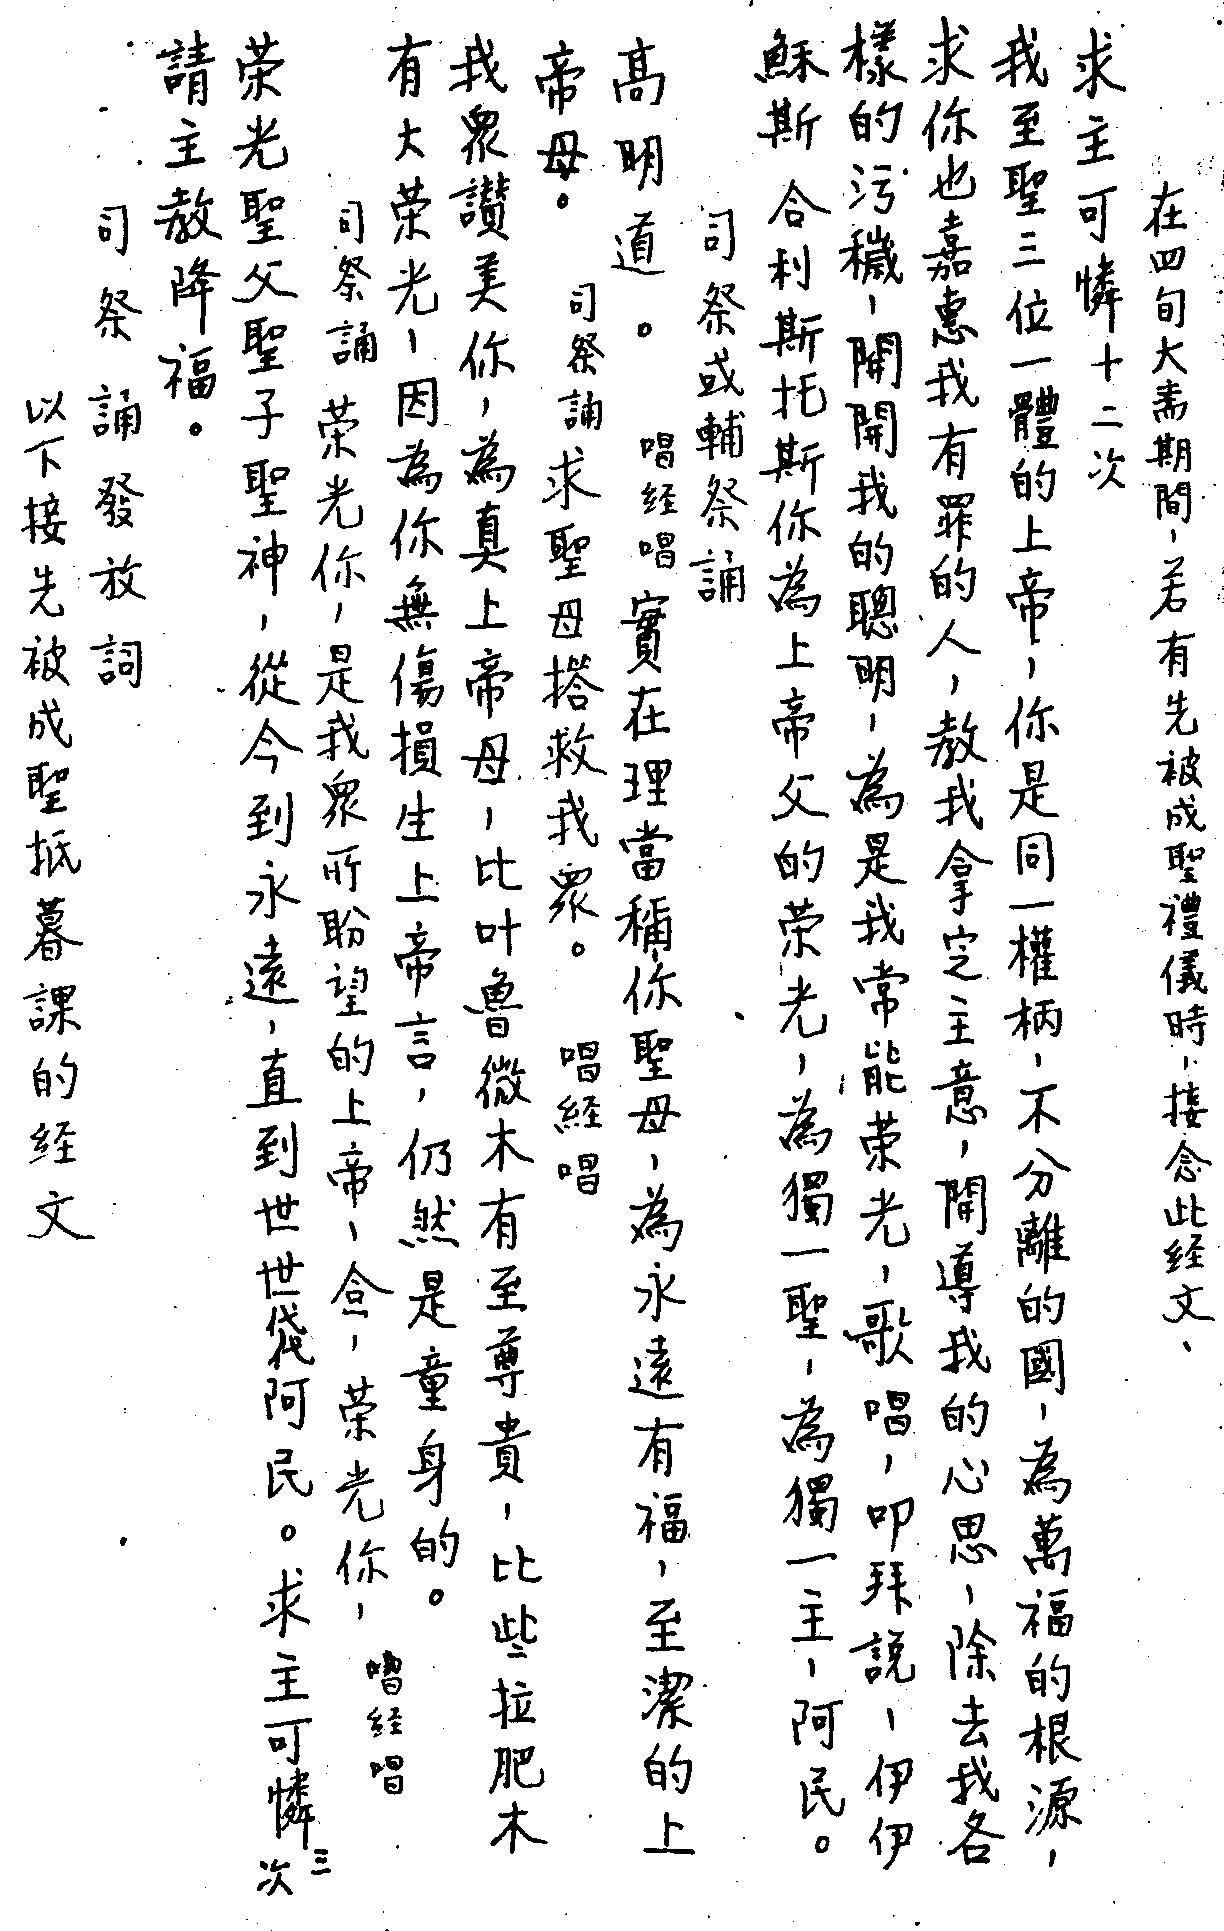 在四旬大齋期間，若有先被成聖禮儀時，接念此経文、
求主可憐十二次
我至聖三位一體的上帝，你是同一權柄，不分離的國，為萬福的根源，
求你也嘉惠我有罪的人，教我拿定主意，開導我的心思，除去我各
樣的污穢，開開我的聰明，為是我常能荣光，歌唱，叩拜說，伊伊
穌斯 合利斯托斯你為上帝父的荣光，為獨一聖，為獨一主，阿民。
司祭或輔祭誦
高明道。 唱経唱 實在理當稱你聖母，為永遠有福，至潔的上
帝母。 司祭誦 求聖母搭救我眾。 唱経唱
我眾讚美你，為真上帝母，比叶魯微木有至尊貴，比些拉肥木
有大荣光，因為你無傷損生上帝言，仍然是童身的。
司祭誦 荣光你，是我眾所盼望的上帝，荣光你， 唱経唱
荣光聖父聖子聖神，從今到永遠，直到世世阿民。求主可憐三次
請主教降福。
司祭 誦發放詞
以下接先被成聖抵暮課的経文